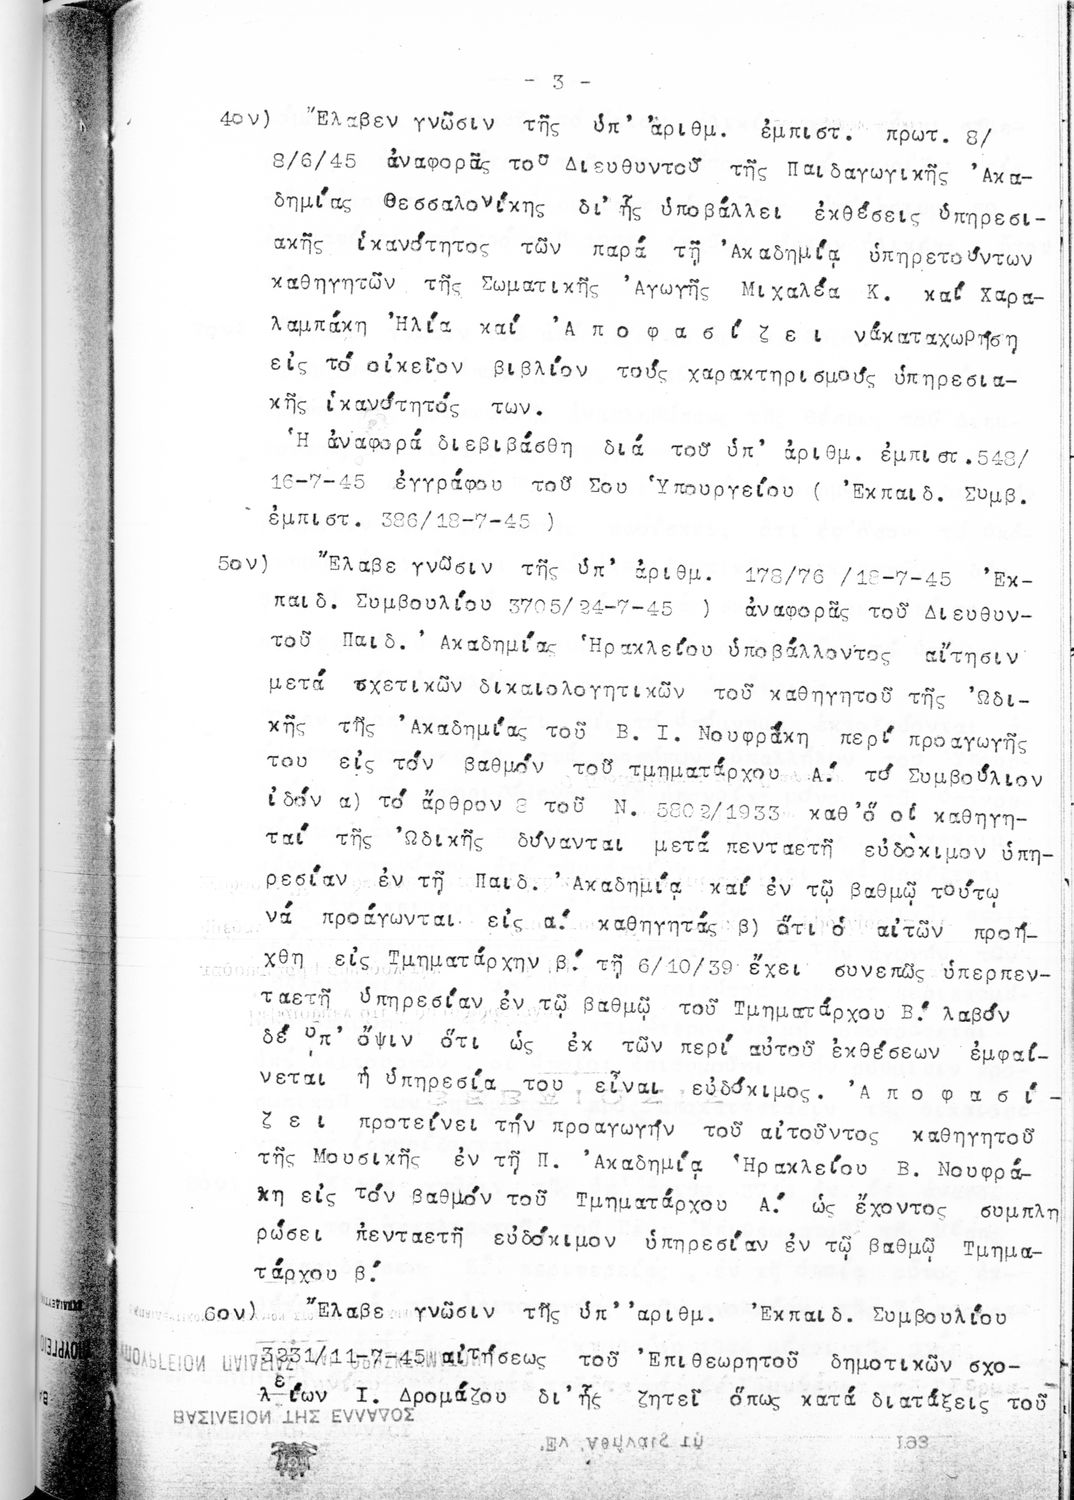 - 3 -
4ον) Ἔλαβεν γνῶσιν τῆς ὑπ' ἀριθμ. ἐμπιστ. πρωτ. 8/
8/6/45 ἀναφορᾶς τοῦ Διευθυντοῦ τῆς Παιδαγωγικῆς Ἀκα-
δημίας Θεσσαλονίκης δι' ἧς ὑποβάλλει ἐκθέσεις ὑπηρεσι-
ακῆς ἱκανότητος τῶν παρά τῇ Ἀκαδημίᾳ ὑπηρετούντων
καθηγητῶν τῆς Σωματικῆς Ἀγωγῆς Μιχαλέα Κ. καί Χαρα-
λαμπάκη Ἠλία καί Ἀ π ο φ α σ ί ζ ε ι νάκαταχωρήση
εἰς τό οἰκεῖον βιβλίον τούς χαρακτηρισμούς ὑπηρεσια-
κῆς ἱκανότητός των.
Ἡ ἀναφορά διεβιβάσθη διά τοῦ ὑπ' ἀριθμ. ἐμπιστ.548/
16-7-45 ἐγγράφου τοῦ Σου Ὑπουργείου ( Ἐκπαιδ. Συμβ.
ἐμπιστ. 386/18-7-45 )
5ον) Ἔλαβε γνῶσιν τῆς ὑπ' ἀριθμ. 178/76 /18-7-45 Ἐκ-
παιδ. Συμβουλίου 3705/24-7-45 ) ἀναφορᾶς τοῦ Διευθυν-
τοῦ Παιδ. Ἀκαδημίας Ἡρακλείου ὑποβάλλοντος αἴτησιν
μετά σχετικῶν δικαιολογητικῶν τοῦ καθηγητοῦ τῆς Ὠδι-
κῆς τῆς Ἀκαδημίας τοῦ Β. Ι. Νουφράκη περί προαγωγῆς
του εἰς τόν βαθμόν τοῦ τμηματάρχου Α΄ τό Συμβούλιον
ἰδόν α) τό ἄρθρον 8 τοῦ Ν. 5802/1933 καθ'ὅ οἱ καθηγη-
ταί τῆς Ὠδικῆς δύνανται μετά πενταετῆ εὐδόκιμον ὑπη-
ρεσίαν ἐν τῇ Παιδ. Ἀκαδημίᾳ καί ἐν τῷ βαθμῷ τούτῳ
νά προάγωνται εἰς α΄ καθηγητάς β) ὅτι ὁ αἰτῶν προή-
χθη εἰς Τμηματάρχην β΄ τῇ 6/10/39 ἔχει συνεπῶς ὑπερπεν-
ταετῆ ὑπηρεσίαν ἐν τῷ βαθμῷ τοῦ Τμηματάρχου Β΄ λαβόν
δέ ὑπ' ὄψιν ὅτι ὡς ἐκ τῶν περί αὐτοῦ ἐκθέσεων ἐμφαί-
νεται ἡ ὑπηρεσία του εἶναι εὐδόκιμος. Ἀ π ο φ α σ ί -
ζ ε ι προτείνει τήν προαγωγήν τοῦ αἰτοῦντος καθηγητοῦ
τῆς Μουσικῆς ἐν τῇ Π. Ἀκαδημίᾳ Ἡρακλείου Β. Νουφρά-
κη εἰς τόν βαθμόν τοῦ Τμηματάρχου Α΄ ὡς ἔχοντος συμπλη
ρώσει πενταετῆ εὐδόκιμον ὑπηρεσίαν ἐν τῷ βαθμῷ Τμημα-
τάρχου β΄
6ον) Ἔλαβε γνῶσιν τῆς ὑπ' ἀριθμ. Ἐκπαιδ. Συμβουλίου
3231/11-7-45 αἰτήσεως τοῦ Ἐπιθεωρητοῦ δημοτικῶν σχο-
λείων Ι. Δρομάζου δι' ἧς ζητεῖ ὅπως κατά διατάξεις τοῦ
ΒΑΣΙΛΕΙΟΝ ΤΗΣ ΕΛΛΑΔΟΣ